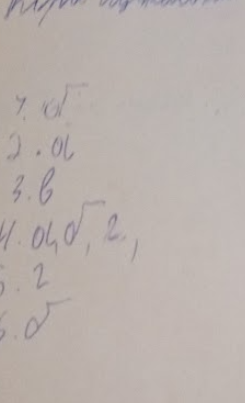 1. б
2. а
3. в
4. а, б, г,
5. г
6. б